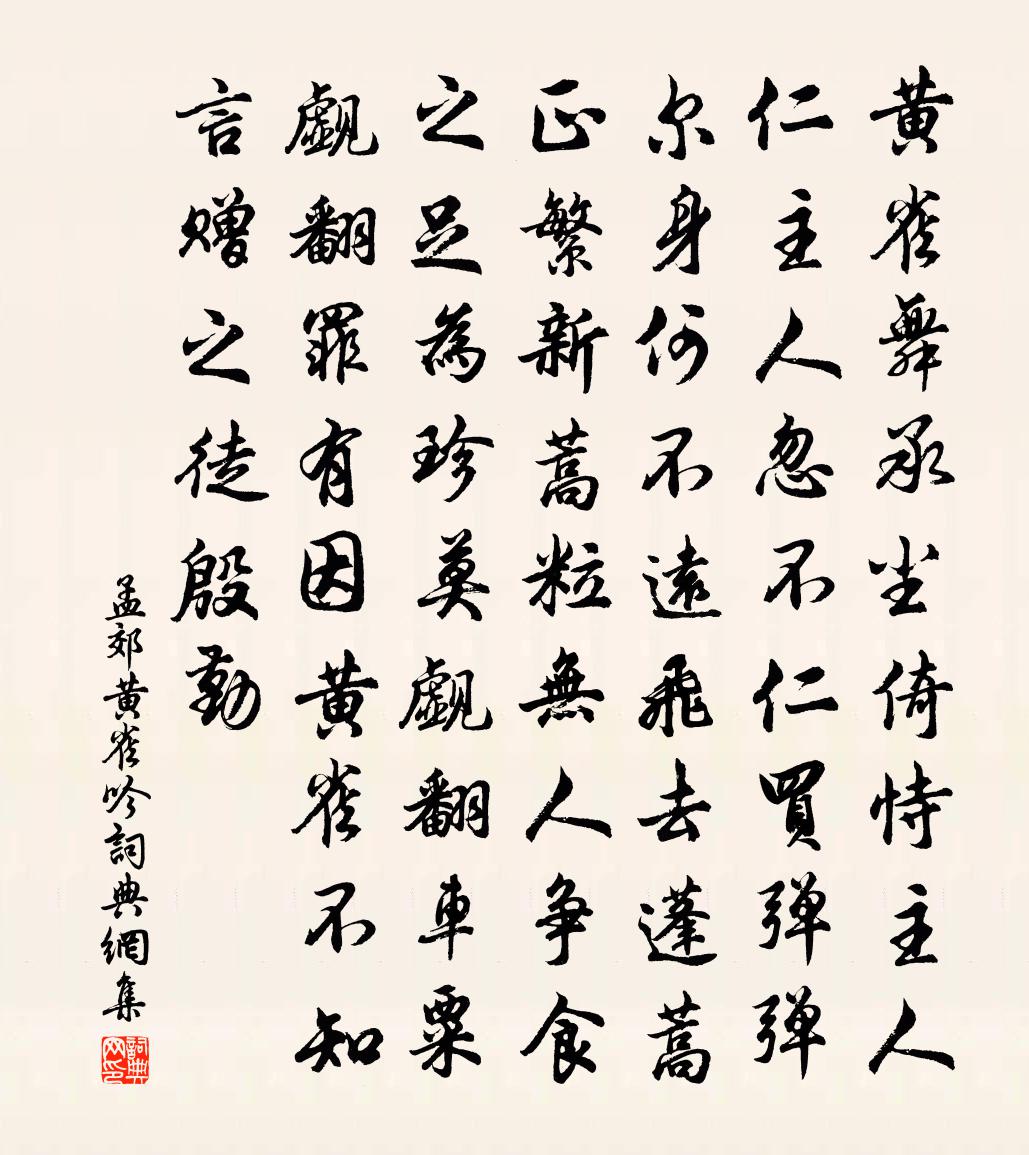 黄雀舞承尘倚恃主人
仁主人忽不仁買弹弹
尔身何不遠飛去蓬蒿
正繁新蒿粒無人争食
之足為珍莫覷翻車粟
覷翻罪有因黄雀不知
言赠之徒殷勤
孟郊黄雀吟詞典網集
詞典网印